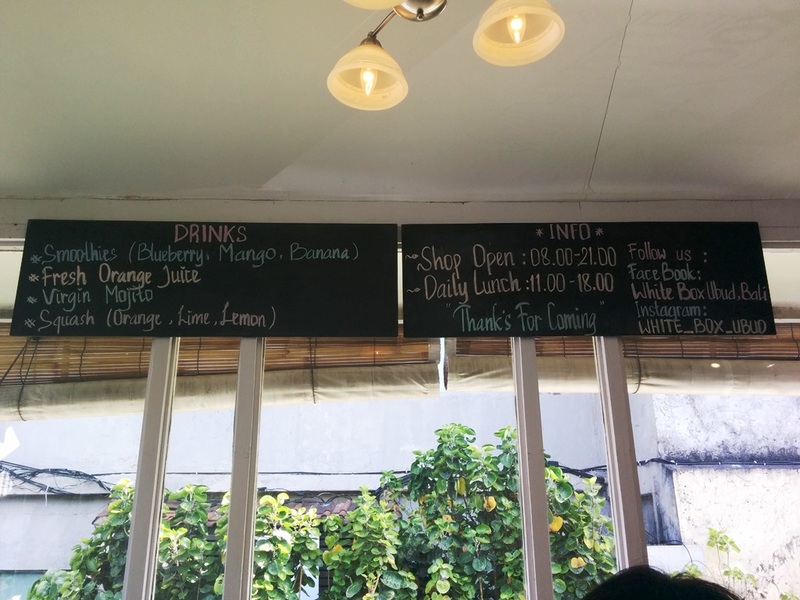 DRINKS
* Smoothies (Blueberry, Mango, Banana)
* Fresh Orange Juice
* Virgin Mojito
* Squash (Orange, Lime, Lemon)
* INFO *
~ Shop Open : 08.00-21.00
~ Daily Lunch : 11.00 - 18.00
"Thank's For Coming"
Follow us :
FaceBook:
White Box Ubud, Bali
Instagram:
WHITE_BOX_UBUD